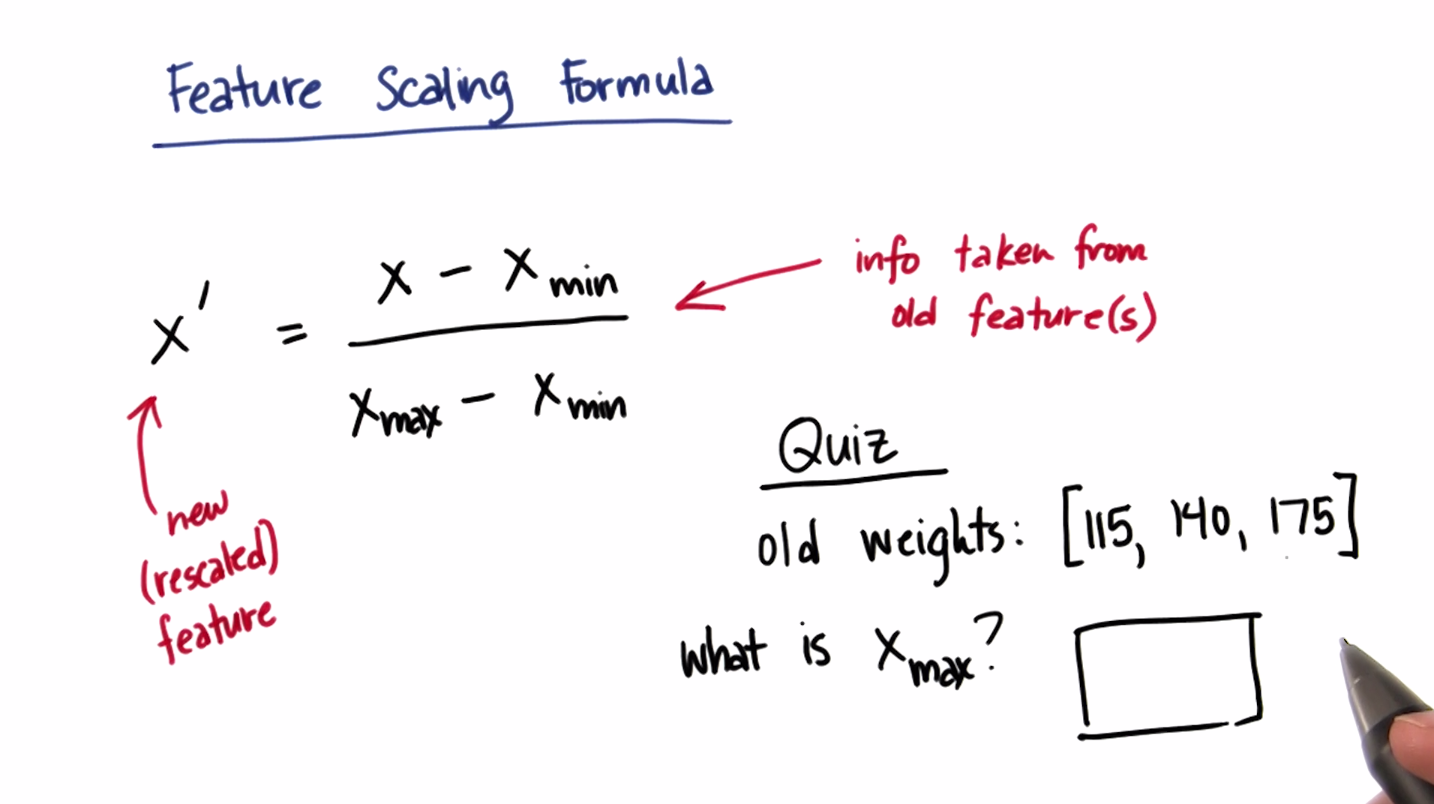 Feature Scaling Formula
x' = (x - x min) / (x max - x min)
info taken from
old feature(s)
new
(rescaled)
feature
Quiz
old weights: [115, 140, 175]
what is x max?